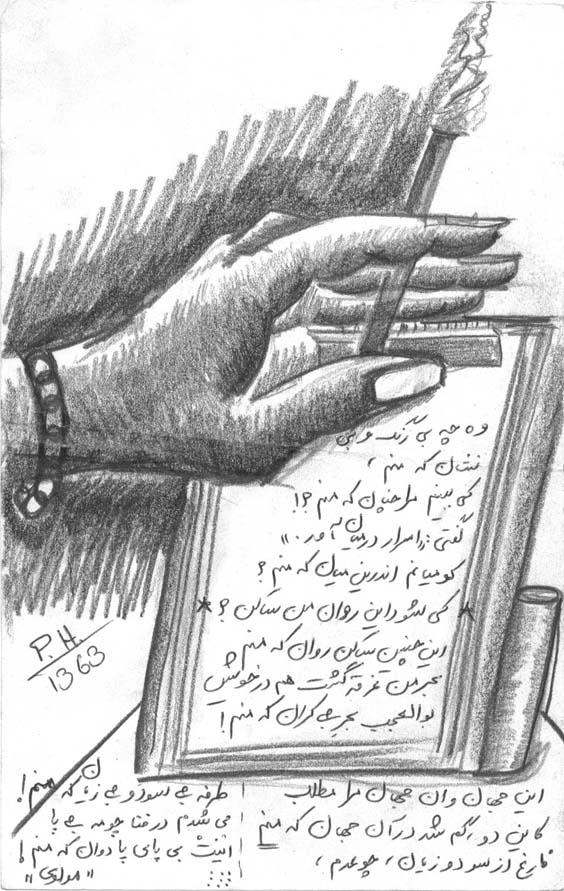 وه چه بی رنگ و بی
نشان که منم ،
کی ببینم مرا چنان که منم ؟!
گفتی : «اسرار در میان آور .»
کو میانم اندرین میان که منم ؟
* کی شود این روان من ساکن ؟ *
این چنین ساکن روان که منم
بحر من غرقه گشت هم در خویش
بوالعجب بحر بی کران که منم !
P.H.
1363
این جهان و آن جهان مرا مطلب
کاین دو ، گم شد در آن جهان که منم
فارغ از سود و زیان ، چو عدم ،
طرفه بی سود و بی زیان که منم !
می شدم در فنا چو مه بی پا
اینت بی پای پا دوان که منم !
"مولوی"